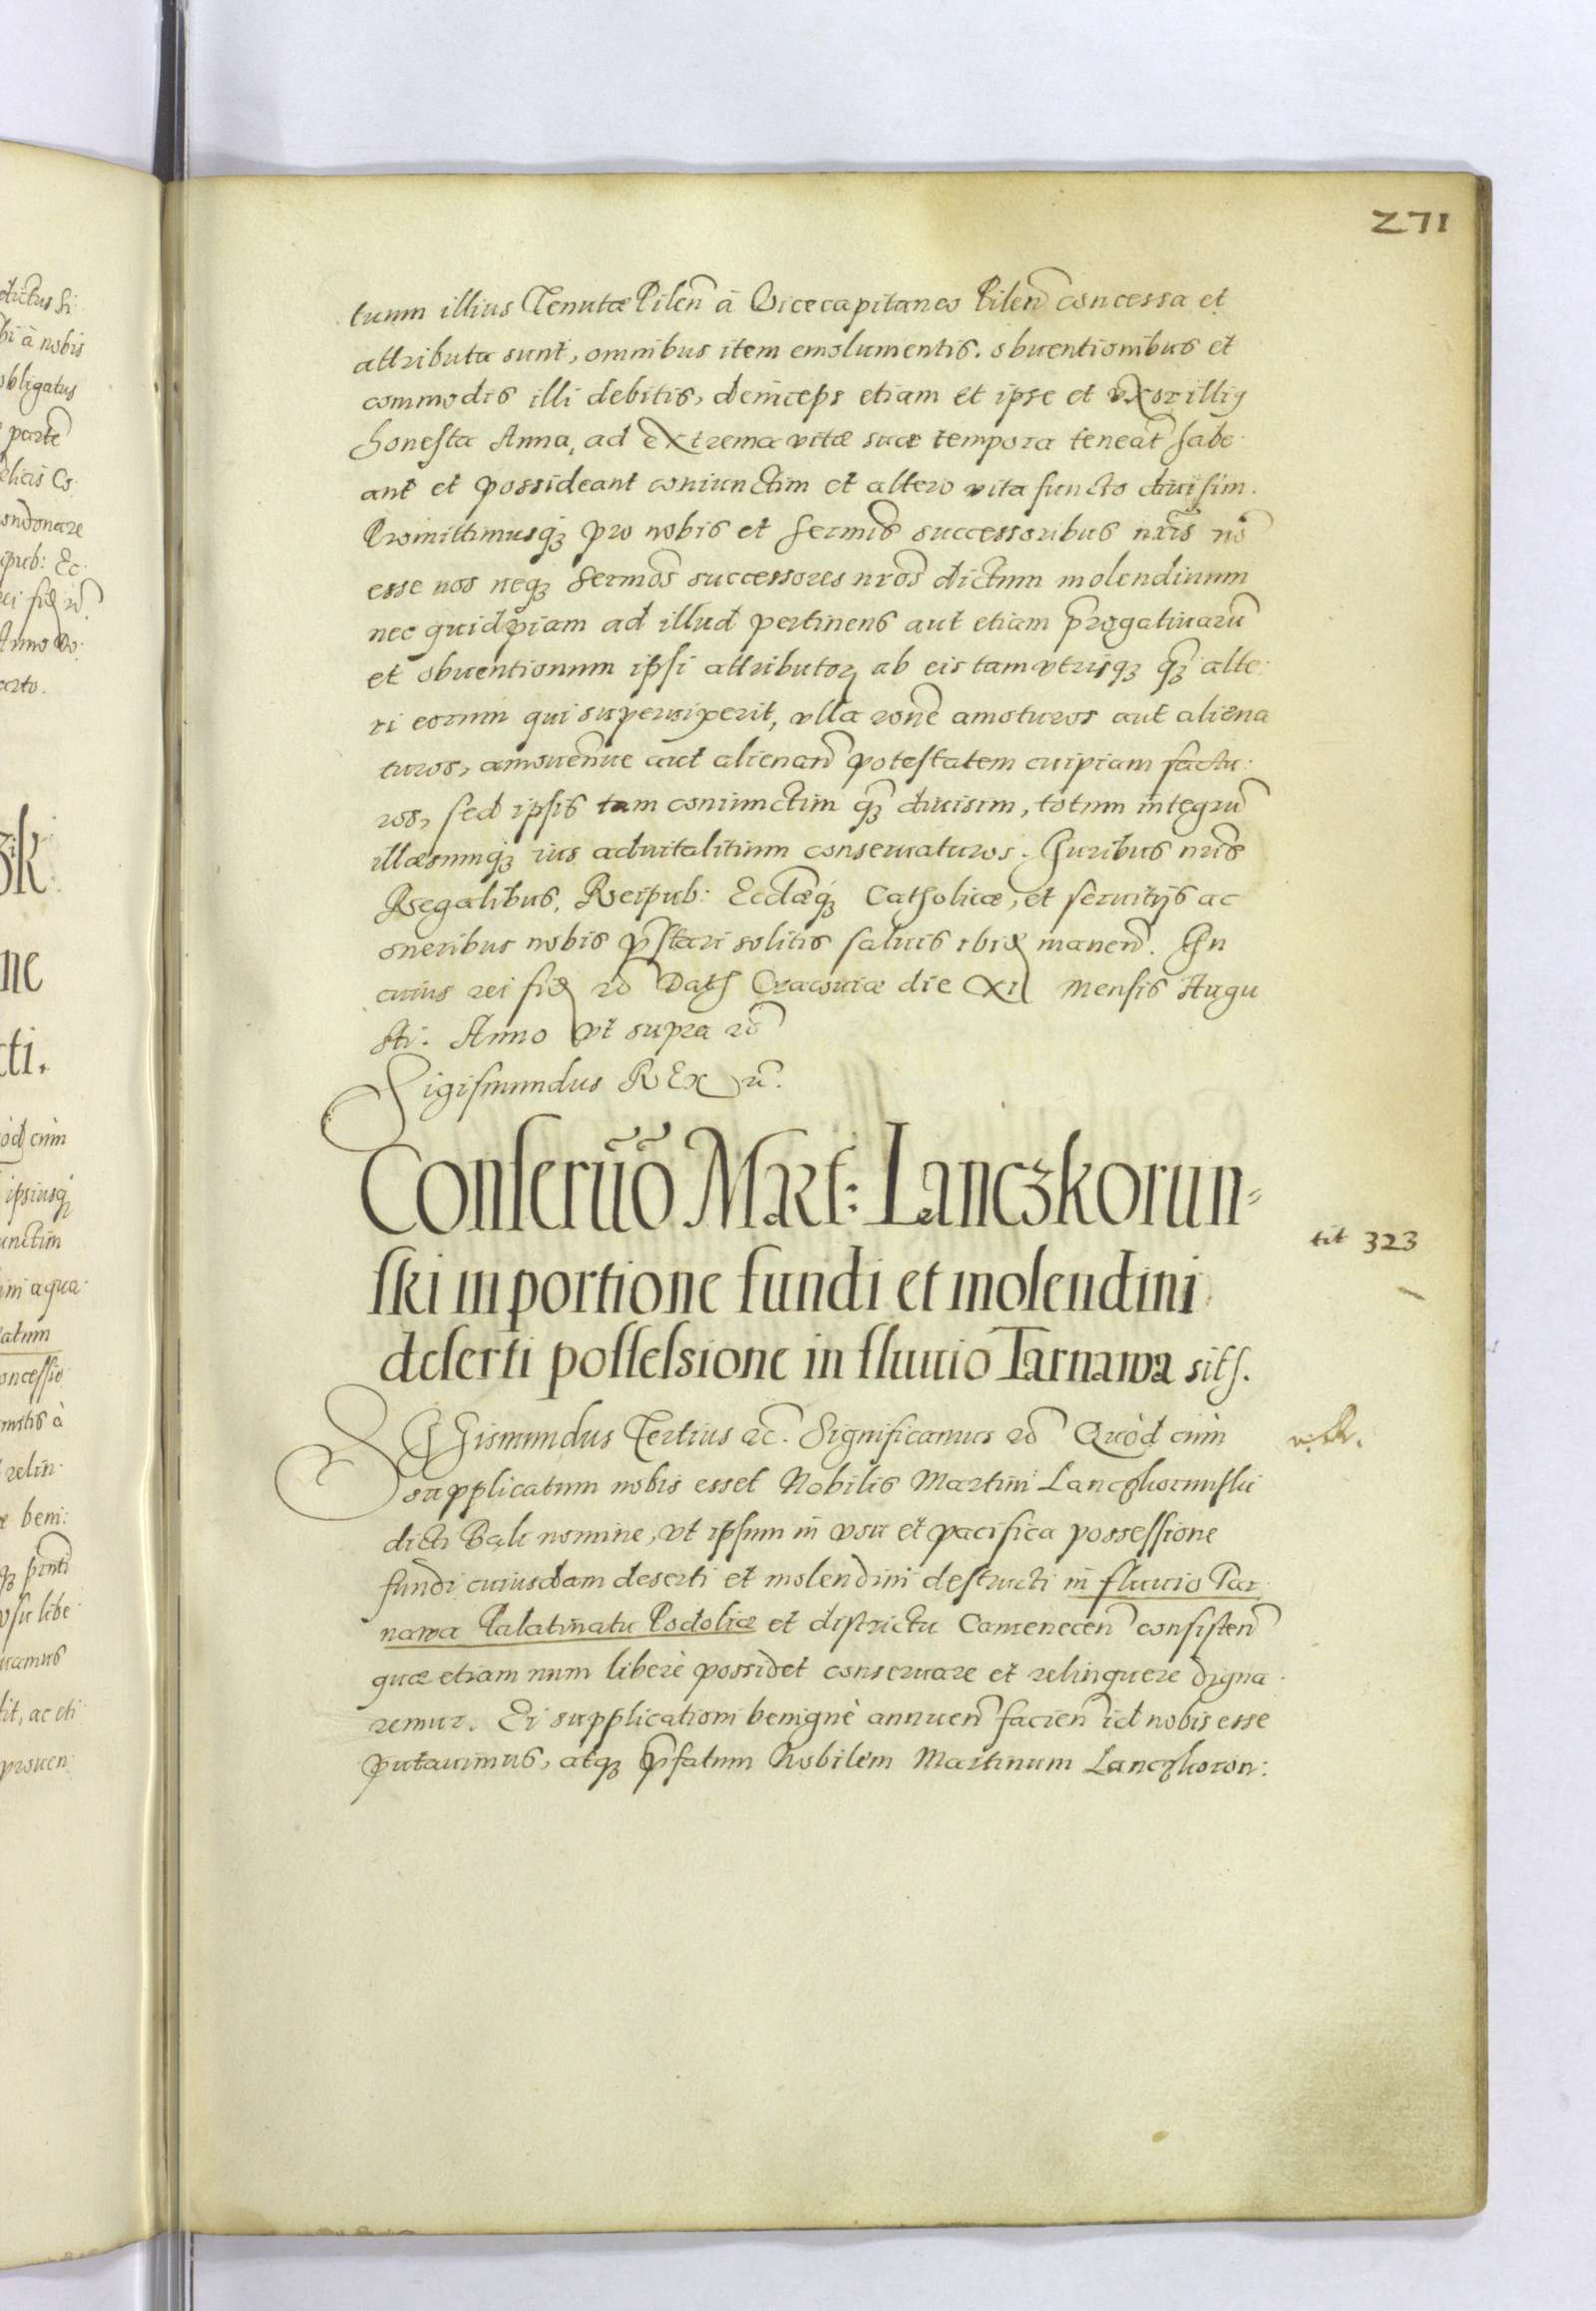 271
tuum illius Tenutæ Pilen̄ à Vicecapitaneo Pilen̄ concessa et
attributa sunt, omnibus item emolumentis. obuentionibus et
commodis illi debitis, deinceps etiam et ipse et vxor illiꝰ
honesta Anna, ad extrema vitæ suæ tempora teneāt habe-
ant et possideant coniunctim et altero vita functo diuisim.
Promittimusq́ꝫ pro nobis et Sermis̄ successoribus nr̄is nō
esse nos neqꝫ Sermos̄ successores nr̄os dictum molendinum
nec quidpiam ad illud pertinens aut etiam p̄rogatiuarū
et obuentionum ipsi attributorꝝ ab eis tam vtrisqꝫ q̄ꝫ alte-
ri eorum qui superuixerit, vlla rōne amoturos aut aliena
turos, amouen̄ue aut alienan̄ potestatem cuipiam factu-
ros, sed ipsis tam coniunctim q̄ꝫ diuisim, totum integrū
illæsumq́ꝫ ius aduitalitium conseruaturos. Iuribus nr̄is
Regalibus, Reipub: Eccl̄æq́ꝫ Catholicæ, et seruitijs ac
oneribus nobis p̄stari solitis saluis ibidē manen̄. In
cuius rei fidē ꝛc̄ Datꝭ Cracouiæ die XII Mensis Augu
sti. Anno vt supra ꝛc̄
Sigismundus REx ꝛc̄.
Conseruāo Mart: Lanczkorun-
ski in portione fundi et molendini
deserti possessione in fluuio Tarnawa sitꝭ.
tit 323
SIGismundus Tertius ꝛc̄. Significamus ꝛc̄ Quòd cùm
supplicatum nobis esset Nobilis Martini Lanczkorunski
dicti Bąk nomine, vt ipsum in vsu et pacifica possessione
fundi cuiusdam deserti et molendini destructi in fluuio Tar-
nawa Palatinatu Podoliæ et districtu Camenecen̄ consisten̄
quæ etiam num liberè possidet conseruare et relinquere digna-
remur. Ei supplicationi benignè annuen̄ facien̄ id nobis esse
putauimus, atqꝫ p̄fatum Nobilem Martinum Lanczkoron: